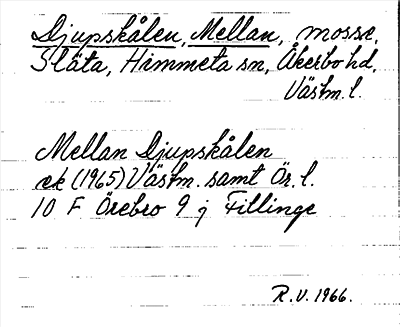 Djupskålen, Mellan, mosse,
Släta, Himmeta sn, Åkerbo hd,
Västm. l.
Mellan Djupskålen
ek (1965) Västm. samt Ör. l.
10 F Örebro 9 j Fillinge
R.V. 1966.